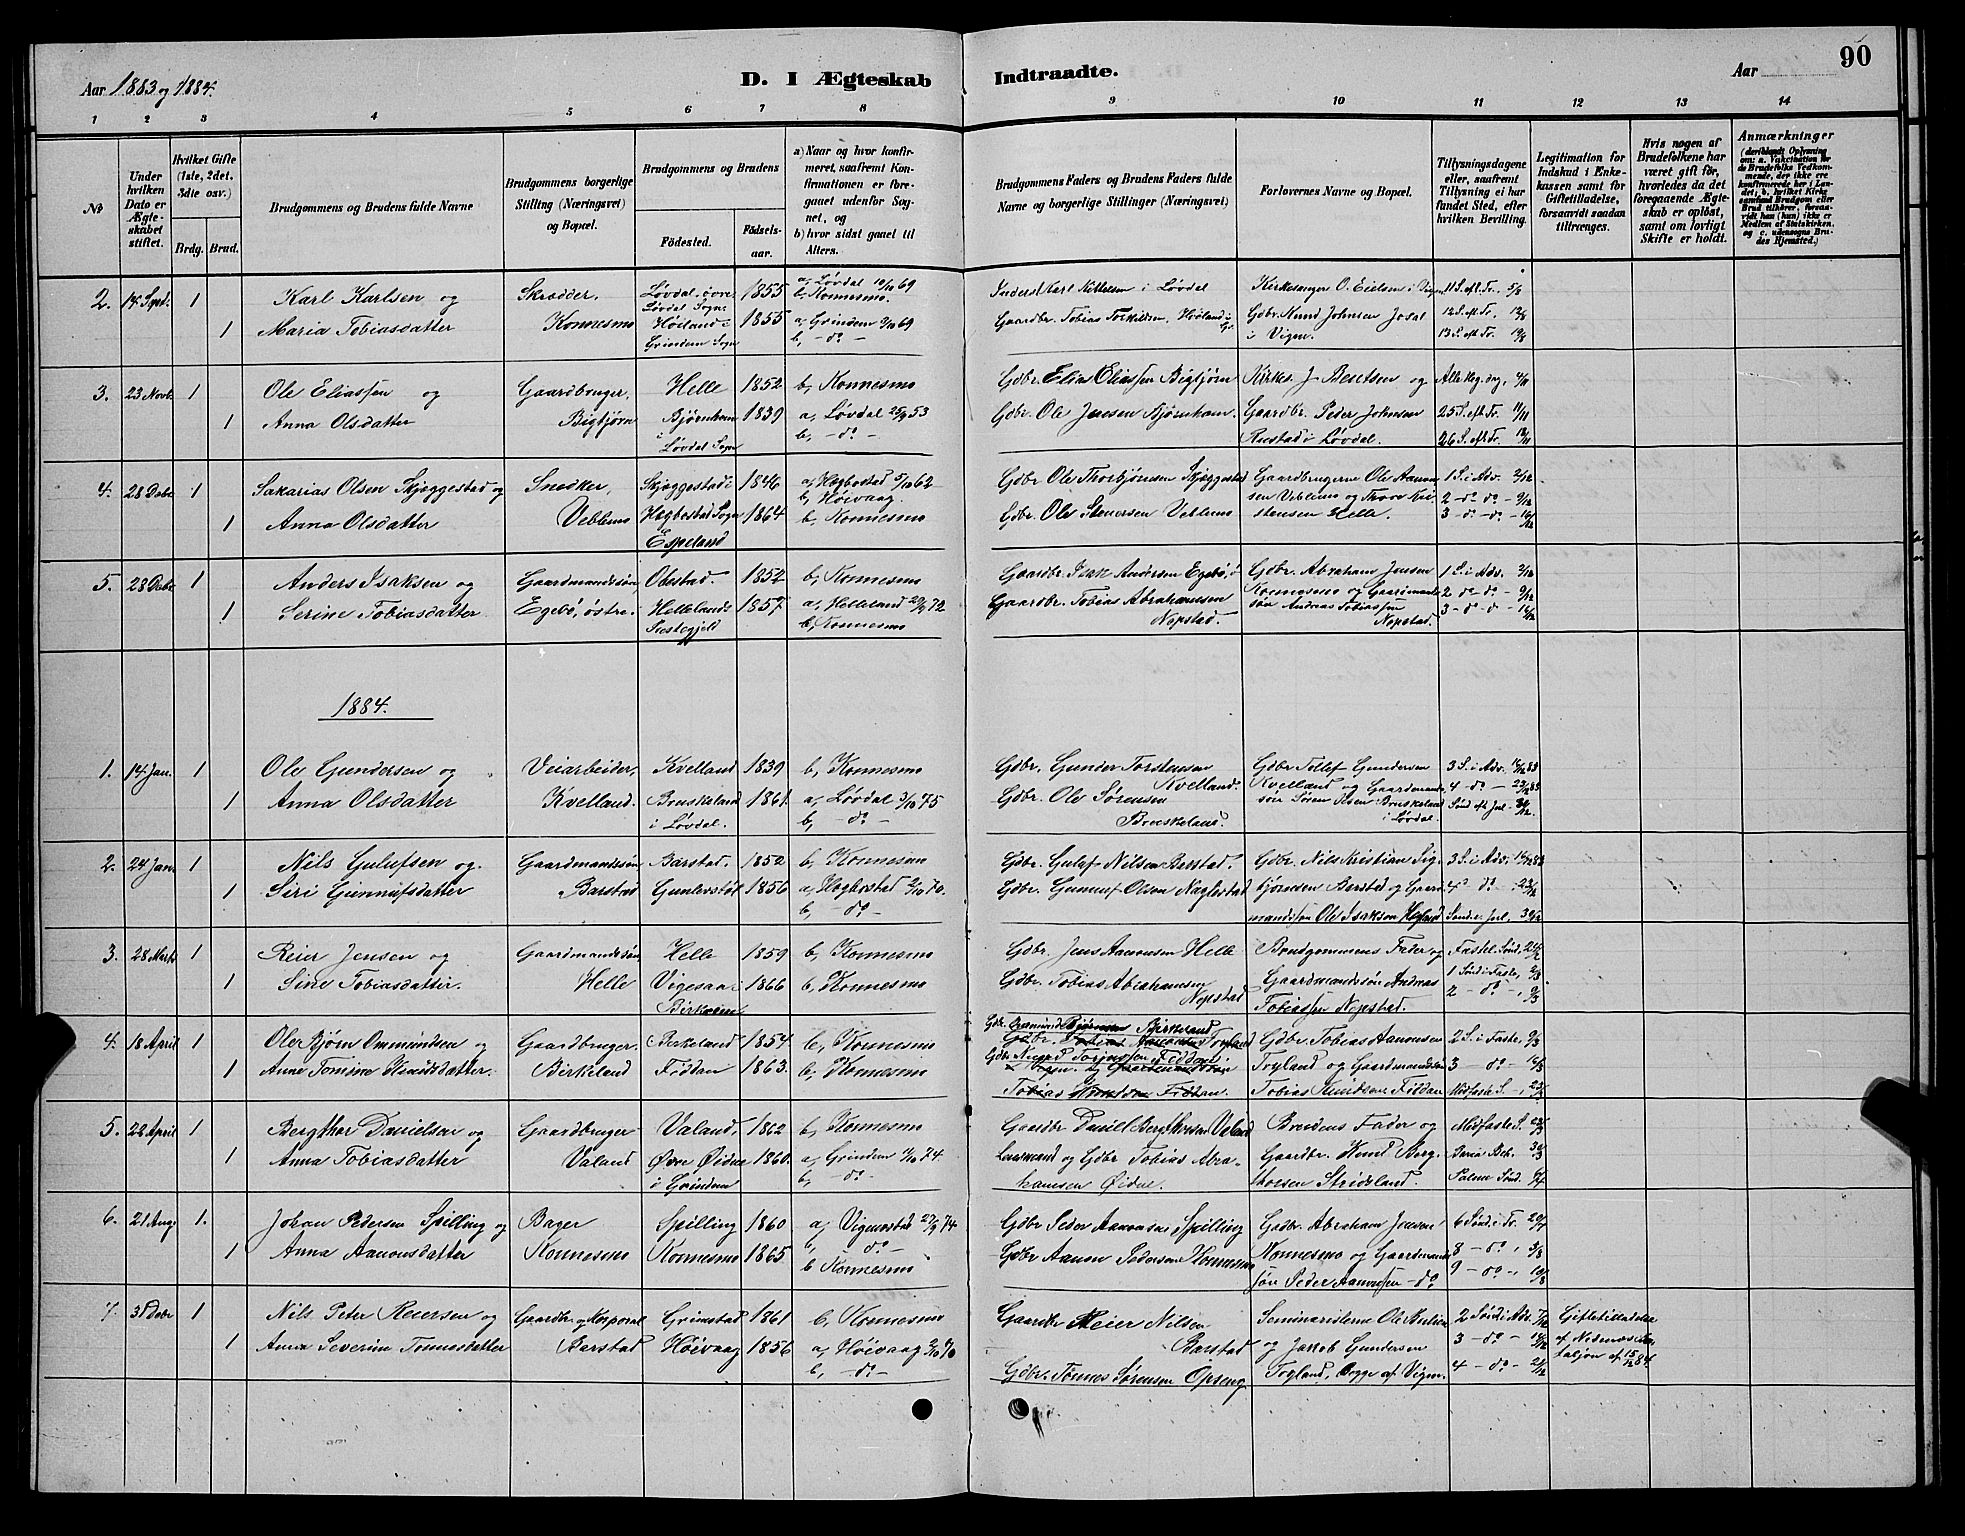 90
Aar 1883 og 1884.
D. I Ægteskab Indtraadte.
Aar
1 2 3 4 5 6 7 8 9 10 11 12 13 14
No
Under hvilken Dato er Ægteskabet stiftet.
Hvilket Gifte (1ste, 2det, 3die osv.)
Brdg. Brud.
Brudgommens og Brudens fulde Navne
Brudgommens borgerlige Stilling (Næringsvei) og Bopæl.
Brudgommens og Brudens
Fødested. Fødselsaar.
a) Naar og hvor konfirmeret, saafremt Konfirmationen er foregaaet udenfor Sognet, og
b) hvor sidst gaaet til Alters.
Brudgommens Faders og Brudens Faders fulde Navne og borgerlige Stillinger (Næringsvei)
Forlovernes Navne og Bopæl.
Tillysningsdagene eller, saafremt Tillysning ei har fundet Sted, efter hvilken Bevilling.
Legitimation for Indskud i Enkekassen samt for Giftetilladelse, forsaavidt saadan tiltrænges.
Hvis nogen af Brudefolkene har været gift før, hvorledes da det foregaaende Ægteskab er opløst, samt om lovligt Skifte er holdt.
Anmærkninger
(deriblandt Oplysning om: a. Vakcination for de Brudefolks Vedkommende, der ikke ere konfirmerede her i Landet, b. hvilket Kirkesamfund Brudgom eller Brud tilhører, forsaavidt han (hun) ikke er Medlem af Statskirken, og c. udensogns Brudes Hjemsted.)
2. 14 Sept. 1 Karl Karlsen og Skrædder, Løvdal, øvre 1855 a, Løvdal 10/10 69 Karl Kittelsen i Løvdal Kirkesanger O. Eielsen i Vigm. 11 S. eft. Tr. 5/8
Løvdal Sogn b, Konnesmo.
1 Maria Tobiasdatter Konnesmo Høiland i 1855 a, Grindem 69 Gaardbr. Tobias Torkildsen, Høiland i Gr. Gdbr. Knud Johnsen Josal 12 S. eft Tr. 12/8
Grindem Sogn b, - do - i Vigm. 13 S. eft Tr. 19/8
3. 23 Novb. 1 Ole Eliassen og Gaardbruger, Helle 1852 b, Konnesmo Gdbr. Elias Eliassen Bigtjørn Kirkes. J. og Alle Helg. dag, 4/11
1 Anna Olsdatter Bigtjørn Bjørnham 1839 a, Løvdal 25/9 53 Gdbr. Ole Jensen Bjørnham. Gaardbr. Peder Johnsen 25 S. eft Tr. 11/11
i Løvdal Sogn b, - do - Rustad i Løvdal. 26 S. eft Tr. 18/11
4. 28 Debr 1 Sakarias Olsen Skjeggestad og Snedker, Skjeggestad i 1846 a, Hegbostad 5/10 62 Gdbr Ole Thorbjørnsen Skjeggestad Gaardbrugerne Ole Aanon- 1 S. i Adv. 2/12
b, Høivaag. sen Veblemo og 2 - do - do - 9/12
1 Anna Olsdatter Veblemo Hegbostad Sogn 1864 b, Konnesmo Gdbr. Ole Stenersen Veblemo stensen Helle. 3 - do - do - 16/12
Espeland
5. 28 Debr 1 Anders Isaksen og Gaardmandssøn, Obestad. 1852 b, Konnesmo Gaardbr. Isak Andersen Egebø, ø Gdbr. Abraham Jensen 1 S. i Adv. 2/12
1 Serine Tobiasdatter Egebø, østre. Hellelands 1857 a, Helleland 29/9 72 Gaardbr. Tobias Abrahamsen Konnesmo og Gaardmands- 2 - do - do - 9/12
Prestegjeld b, Konnesmo Nopstad. søn Andreas Tobiassen Nopstad. 3 - do - do - 16/12
1884.
1. 14 Jan. 1 Ole Gundersen og Veiarbeider, Kvelland 1839 b, Konnesmo Gdbr. Gunder Torstensen Kvelland. Gdbr Tellef Gundersen 3 S. i Adv. 16/12 83
1 Anna Olsdatter Kvelland. Bruskeland 1861. a, Løvdal 3/10 75 Gdbr. Ole Sørensen Kvelland og Gaardmands- 4 - do - 23/12 83
i Løvdal. b, - do - Bruskeland. søn Søren Olsen Bruskeland i Løvdal. Sønd eft Jul 30/12
2. 24 Jan. 1 Nils Gulufsen og Gaardmandssøn Barstad. 1852 b, Konnesmo Gdbr. Guluf Nilsen Barstad. Gdbr. Nils Kristian Sig- 3 S. i Adv. 16/12 83
1 Siri Gunnufsdatter Barstad 1856 a, Hegbostad 2/10 70. Gdbr. Gunnuf Olsen Naglestad bjørnsen Barstad og Gaard- 4 do 23/12
b, - do - mandssøn Ole Isaksen Sønd. e. Jul. 30/12
3. 28 Marts 1 Reier Jensen og Gaardmandssøn Helle 1859 b, Konnesmo Gdbr. Jens Aanonsen Helle Brudgommens Fader og Fastel. Sønd. 24/2
1 Sine Tobiasdatter. Helle Vigesaa i 1866 b, Konnesmo Gdbr. Tobias Abrahamsen Gaardmandssøn Andreas 1 Sønd i Faste, 2/3
Birkrem Nopstad Tobiassen Nopstad. 2 - do - 9/3
4. 18 April 1 Ole Bjørn Ommundsen og Gaardbruger. Birkeland 1854 b, Konnesmo Gdbr. Bjørnsen Birkeland Gdbr Tobias Aanonsen 2 S. i Faste 9/3
Gdbr. Tobias Aanonsen Tryland
1 Anne Tomine Knudsdatter. Birkeland Fiddan 1863. b, Konnesmo Gdbr. Fiddan. Tryland og Gaardmandssøn 3 - do - 16/3
Tobias Knudsen Fiddan. Tobias Knudsen Fiddan Midfaste S. 23/3
5. 22 April 1 Bergthor Danielsen og Gaardbruger Valand, 1862 b, Konnesmo Gaardbr Daniel Bergthorsen Valand Brudens Fader og Midfaste S. 23/3
1 Anna Tobiasdatter Valand Øvre Øidne 1860. a, Grindem 74. Lensmand og Gdbr Tobias Abra- Gaardbr. Knud Berg- Maria Beb. 30/3
i Grindem b, - do - hamsen Øidne. thorsen Strideland. Palme Sønd. 6/4
6. 21 Aug. 1. Johan Pedersen Spilling og Bager Spilling 1860 a, Vigmostad 27/9 74 Gdbr Peder Aanonsen Spilling Gdbr. Abraham Jensen 6 Sønd. i Tr. 20/7
b, - do -
1 Anna Aanonsdatter Konnesmo Konnesmo 1865. b, Konnesmo Gdbr Aanon Pedersen Konnesmo Konnesmo og Gaardmands- 8 - do - 3/8
søn Peder Aanonsen - do 9 - do - 10/8
7. 31 Debr 1 Nils Peter Reiersen og Gaardbr og Korporal Grimstad 1861 b, Konnesmo Gaardbr Reier Nilsen Seminaristerne Ole 2 Sønd i Adv. 7/12 Giftetilladelse
1 Anna Severine Tønnesdatter Barstad Høivaag 1856 a, Høivaag 2/10 70 Barstad og Jakob Gundersen 3 - do - 14/12 af Nedenæs Ba-
b, - do - Gdbr. Tønnes Sørensen Opseng Tryland, begge af Vigm. 4 - do - 21/12 taljon af 15/12 84